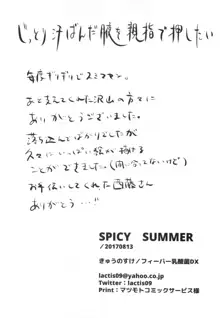 じっとり汗ばんだ腋を親指で押したい
毎度ギリギリでスミマセン。
あと支えてくれた沢山の方々に
ありがとうございました。
落ち込んでばかりでしたが
久々にいっぱい絵が描ける
ことができました。(間に合ってないけど)
お手伝いしてくれた西藤さん
ありがとう…!!
SPICY SUMMER
/20170813
きゅうのすけ/フィーバー乳酸菌DX
lactis09@yahoo.co.jp
Twitter : lactis09
Print : マツモトコミックサービス様